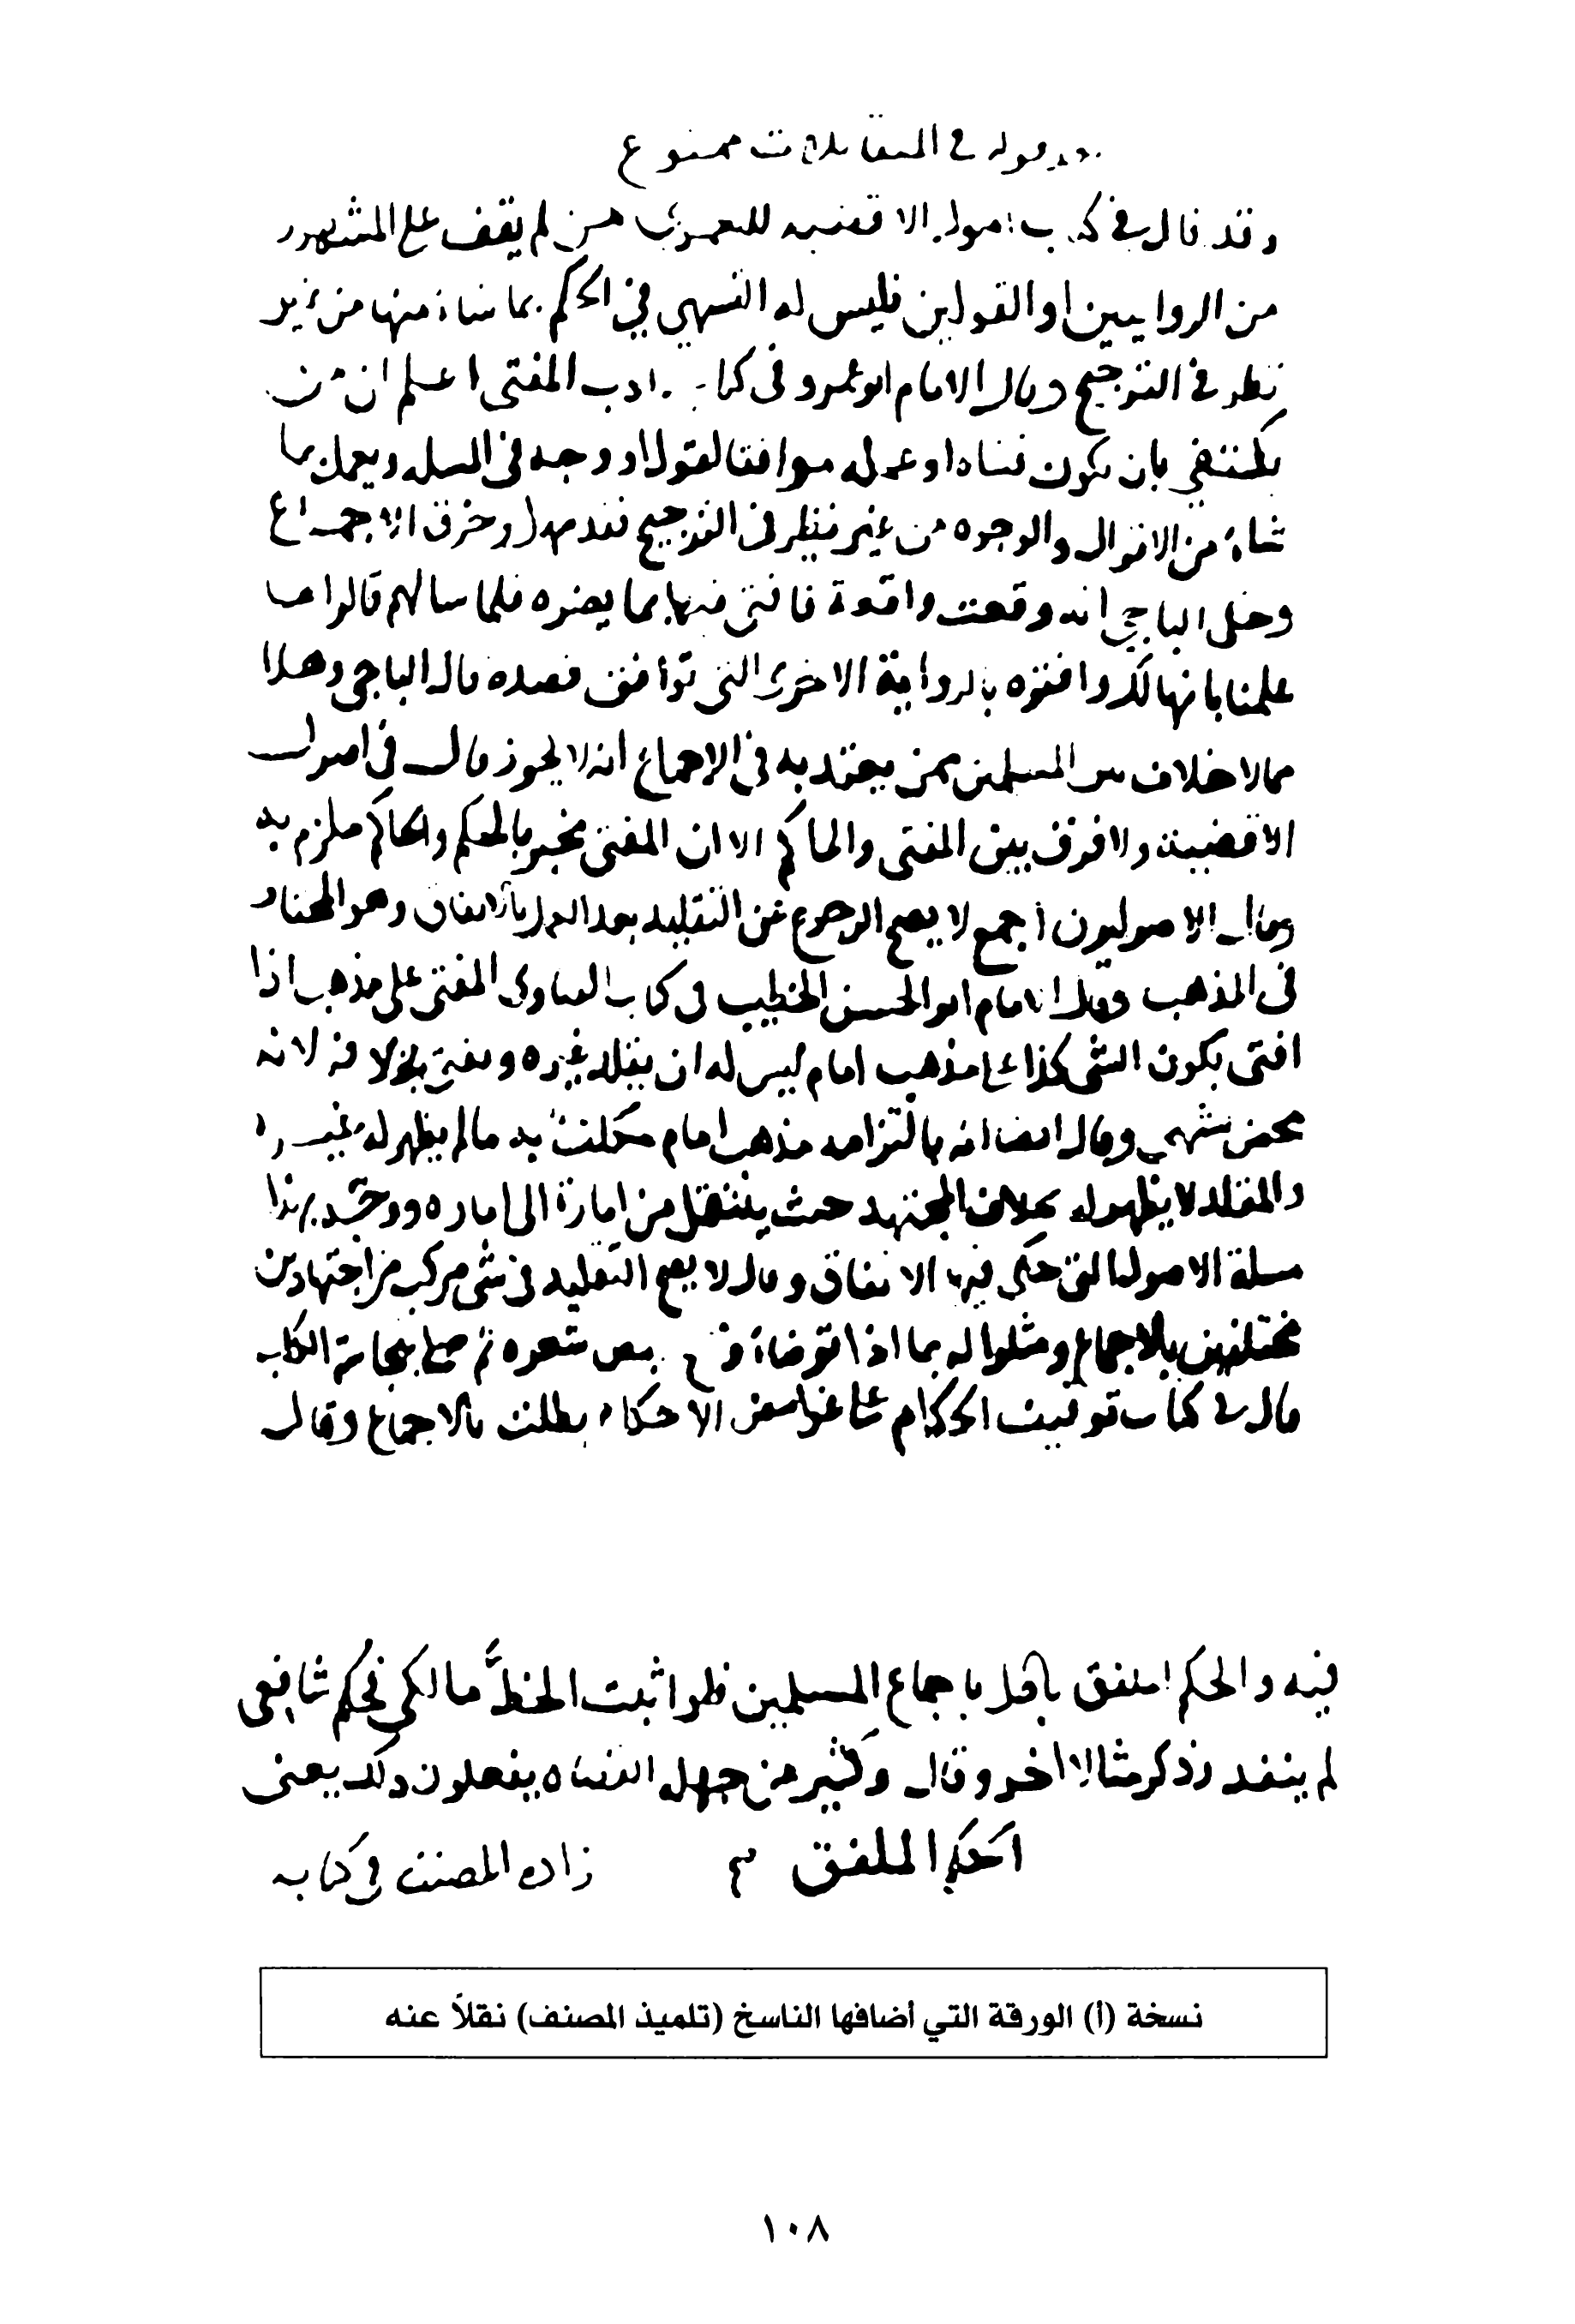 قوله في المقابلات ممنوع
وقد قال في كتاب اصول الاقضيه لليعمري من لم يقف على المشهور
من الروايتين او القولين فليس له التشهي في الحكم بما شاء منها من غير
نظر في الترجيح وقال الامام ابو عمرو في كتاب ادب المفتي اعلم ان من
يكتفي بان يكون فتياه او عمله موافقا لقول او وجه في المسله ويعمل بما
شاء من الاقوال والوجوه من غير نظر في الترجيح فقد جهل وخرق الاجماع
وحكى الباجي انه وقعت واقعة فافتى فيها بما يضره فلما سالهم قالوا ما
علمنا بانها لك وافتوه بالرواية الاخرى التي توافق قصده قال الباجي وهذا
مما لا خلاف بين المسلمين ممن يعتد به في الاجماع انه لا يجوز قال في اصول
الاقضية ولا فرق بين المفتى والحاكم الا ان المفتى مخبر بالحكم والحاكم ملزم به
وقال الاصوليون اجمع لا يصح الرجوع عن التقليد بعد العمل بالاتفاق وهو المختار
في المذهب وقال الامام ابو الحسن الخطيب في كتاب الفتاوى المفتى على مذهب اذا
افتى بكون الشي كذا على مذهب امام ليس له ان يقلد غيره ويفتي بخلافه لانه
محض تشهي وقال ايضا انه بالتزامه مذهب امام مكلف به ما لم يظهر له غيره
والمقلد لا يظهر له بخلاف المجتهد حيث ينتقل من امارة الى اماره ووجه بهذا
مسلة الاصول التي حكى فيها الاتفاق وقال لا يصح التقليد في شي مركب من اجتهادين
مختلفين بالاجماع ومثلوا له بما اذا توضاء ومسح بعض شعره ثم صلى بنجاسة الكلب
قال في كتاب توقيف الحكام على غوامض الاحكام بطلت بالاجماع وقال
فيه والحكم الملفق باطل باجماع المسلمين فلو اثبت الخط مالكي فحكم شافعي
لم ينفذ وذكر مثالا اخر وقال وكثير من جهلة القضاه يفعلون ذلك يعنى
الحكم الملفق زاده المصنف في كتابه
نسخة (أ) الورقة التي أضافها الناسخ (تلميذ المصنف) نقلاً عنه
١٠٨